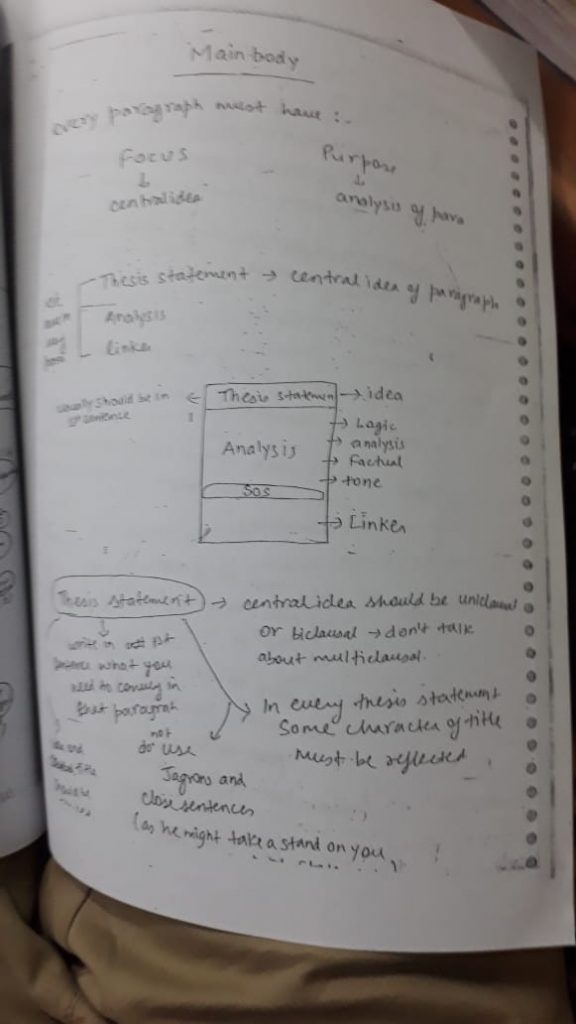 Main body
every paragraph must have :-
Focus
Purpose
↓
↓
central idea
analysis of para
Thesis statement → central idea of paragraph
Analysis
linker
usually should be in
1st sentence
← Thesis statemen → idea
Analysis
→ Logic
→ analysis
→ Factual
→ tone
SOS
→ Linker
Thesis statement → central idea should be uniclausal
or biclausal → don't talk
about multiclausal.
write in 1st
sentence what you
need to convey in
that paragraph
In every thesis statement
Some character of title
Must be reflected
not
do use
Jagrons and
close sentences
(as he might take a stand on you